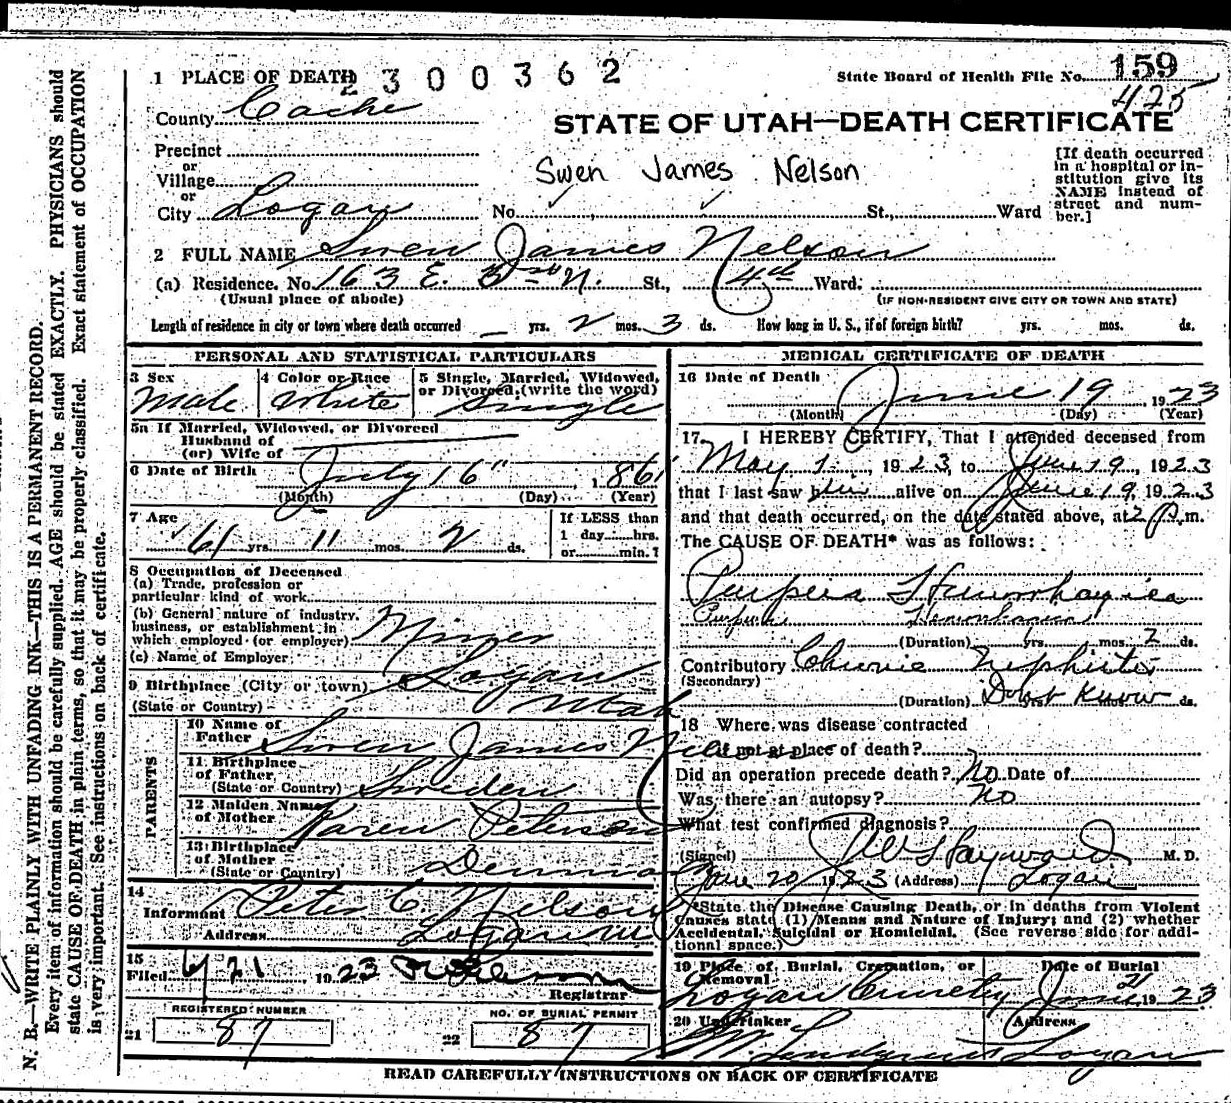 1 PLACE OF DEATH 2300362
State Board of Health File No. 159
425
County Cache
STATE OF UTAH—DEATH CERTIFICATE
Precinct
or
Village
or
City Logan
Swen James Nelson
[If death occurred
in a hospital or in-
stitution give its
NAME instead of
street and num-
ber.]
No. St., Ward
2 FULL NAME Swen James Nelson
(a) Residence. No. 163 E. 3rd N. St., 4th Ward.
(Usual place of abode) (IF NON-RESIDENT GIVE CITY OR TOWN AND STATE)
Length of residence in city or town where death occurred — yrs. 2 mos. 3 ds. How long in U. S., if of foreign birth? yrs. mos. ds.
PERSONAL AND STATISTICAL PARTICULARS
3 Sex
Male
4 Color or Race
White
5 Single, Married, Widowed,
or Divorced, (write the word)
Single
5a If Married, Widowed, or Divorced
Husband of
(or) Wife of
6 Date of Birth July 16" 1861
(Month) (Day) (Year)
7 Age
61 yrs. 11 mos. 2 ds.
If LESS than
1 day hrs.
or min. ?
8 Occupation of Deceased
(a) Trade, profession or
particular kind of work
(b) General nature of industry,
business, or establishment in
which employed (or employer) Miner
(c) Name of Employer
9 Birthplace (City or town) Logan
(State or Country) Utah
PARENTS
10 Name of
Father Swen James Nelson
11 Birthplace
of Father
(State or Country) Sweden
12 Maiden Name
of Mother Karen Peterson
13 Birthplace
of Mother
(State or Country) Denmark
14
Informant Peter C. Nelson
Address Logan
15
Filed 6/21 1923
Registrar
REGISTERED NUMBER
21 87
NO. OF BURIAL PERMIT
22 87
MEDICAL CERTIFICATE OF DEATH
16 Date of Death
June 19 1923
(Month) (Day) (Year)
17 I HEREBY CERTIFY, That I attended deceased from
May 1, 1923, to June 19, 1923
that I last saw him alive on June 19, 1923
and that death occurred, on the date stated above, at 2 p.m.
The CAUSE OF DEATH* was as follows:
Purpura Hemorrhagica
Purpura
(Duration) yrs. mos. 2 ds.
Contributory Chronic Nephritis
(Secondary)
(Duration) Don't Know yrs. ds.
18 Where was disease contracted
if not at place of death?
Did an operation precede death? No Date of
Was there an autopsy? No
What test confirmed diagnosis?
(Signed) Hayward M. D.
June 20, 1923 (Address) Logan
*State the Disease Causing Death, or in deaths from Violent
Causes state (1) Means and Nature of Injury; and (2) whether
Accidental, Suicidal or Homicidal. (See reverse side for addi-
tional space.)
19 Place of Burial, Cremation, or
Removal
Logan Cemetery
Date of Burial
June 21 1923
20 Undertaker
Lindquist
Address
Logan
READ CAREFULLY INSTRUCTIONS ON BACK OF CERTIFICATE
N. B.—WRITE PLAINLY WITH UNFADING INK—THIS IS A PERMANENT RECORD.
Every item of information should be carefully supplied. AGE should be stated EXACTLY. PHYSICIANS should
state CAUSE OF DEATH in plain terms, so that it may be properly classified. Exact statement of OCCUPATION
is very important. See instructions on back of certificate.